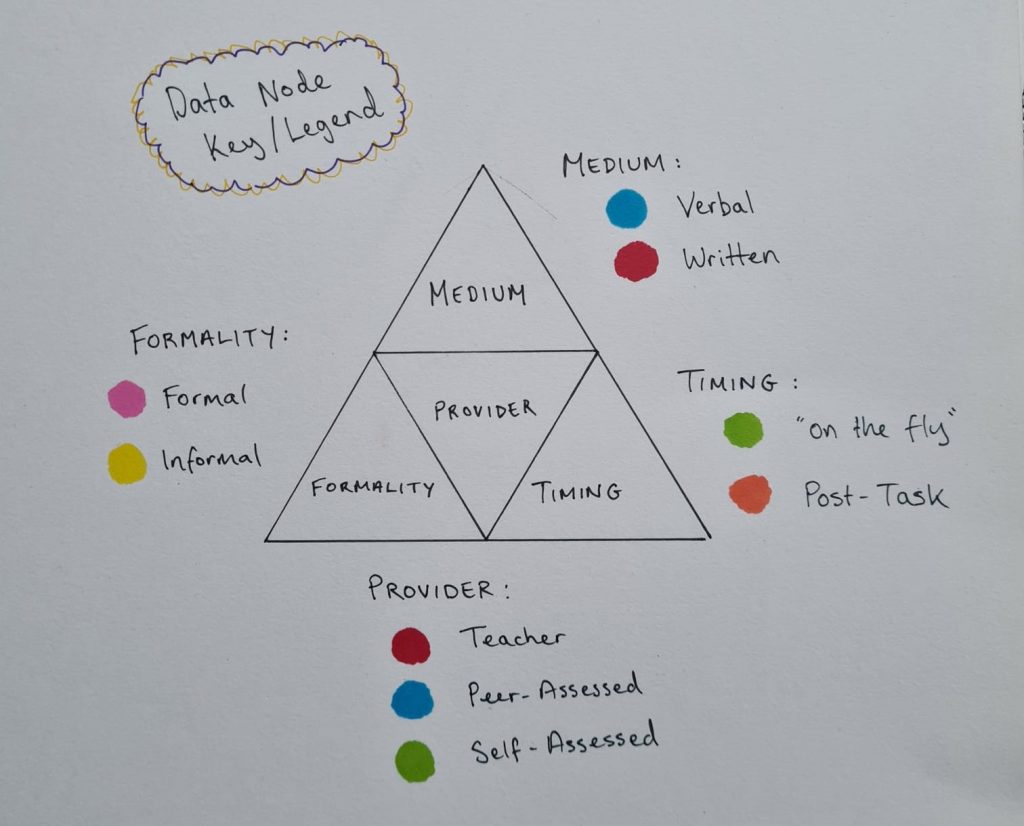 Data Node
Key/Legend
MEDIUM:
Verbal
Written
MEDIUM
FORMALITY:
Formal
Informal
PROVIDER
FORMALITY
TIMING
TIMING:
"on the fly"
Post-Task
PROVIDER:
Teacher
Peer-Assessed
Self-Assessed